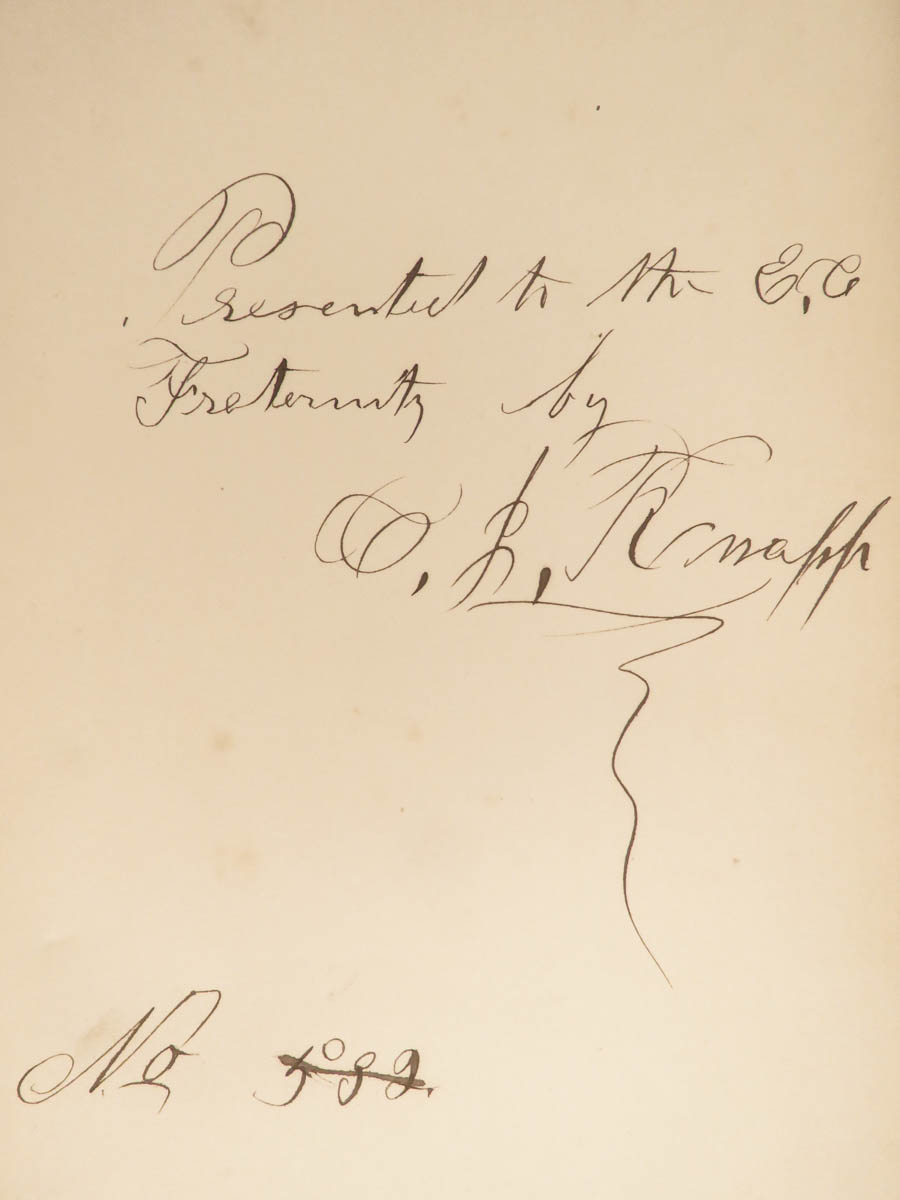 Presented to the E, C
Fraternity by
C. L. Knapp
No